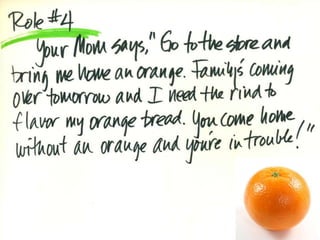 Role #4
Your Mom says, "Go to the store and
bring me home an orange. Family's coming
over tomorrow and I need the rind to
flavor my orange bread. You come home
without an orange and you're in trouble!"